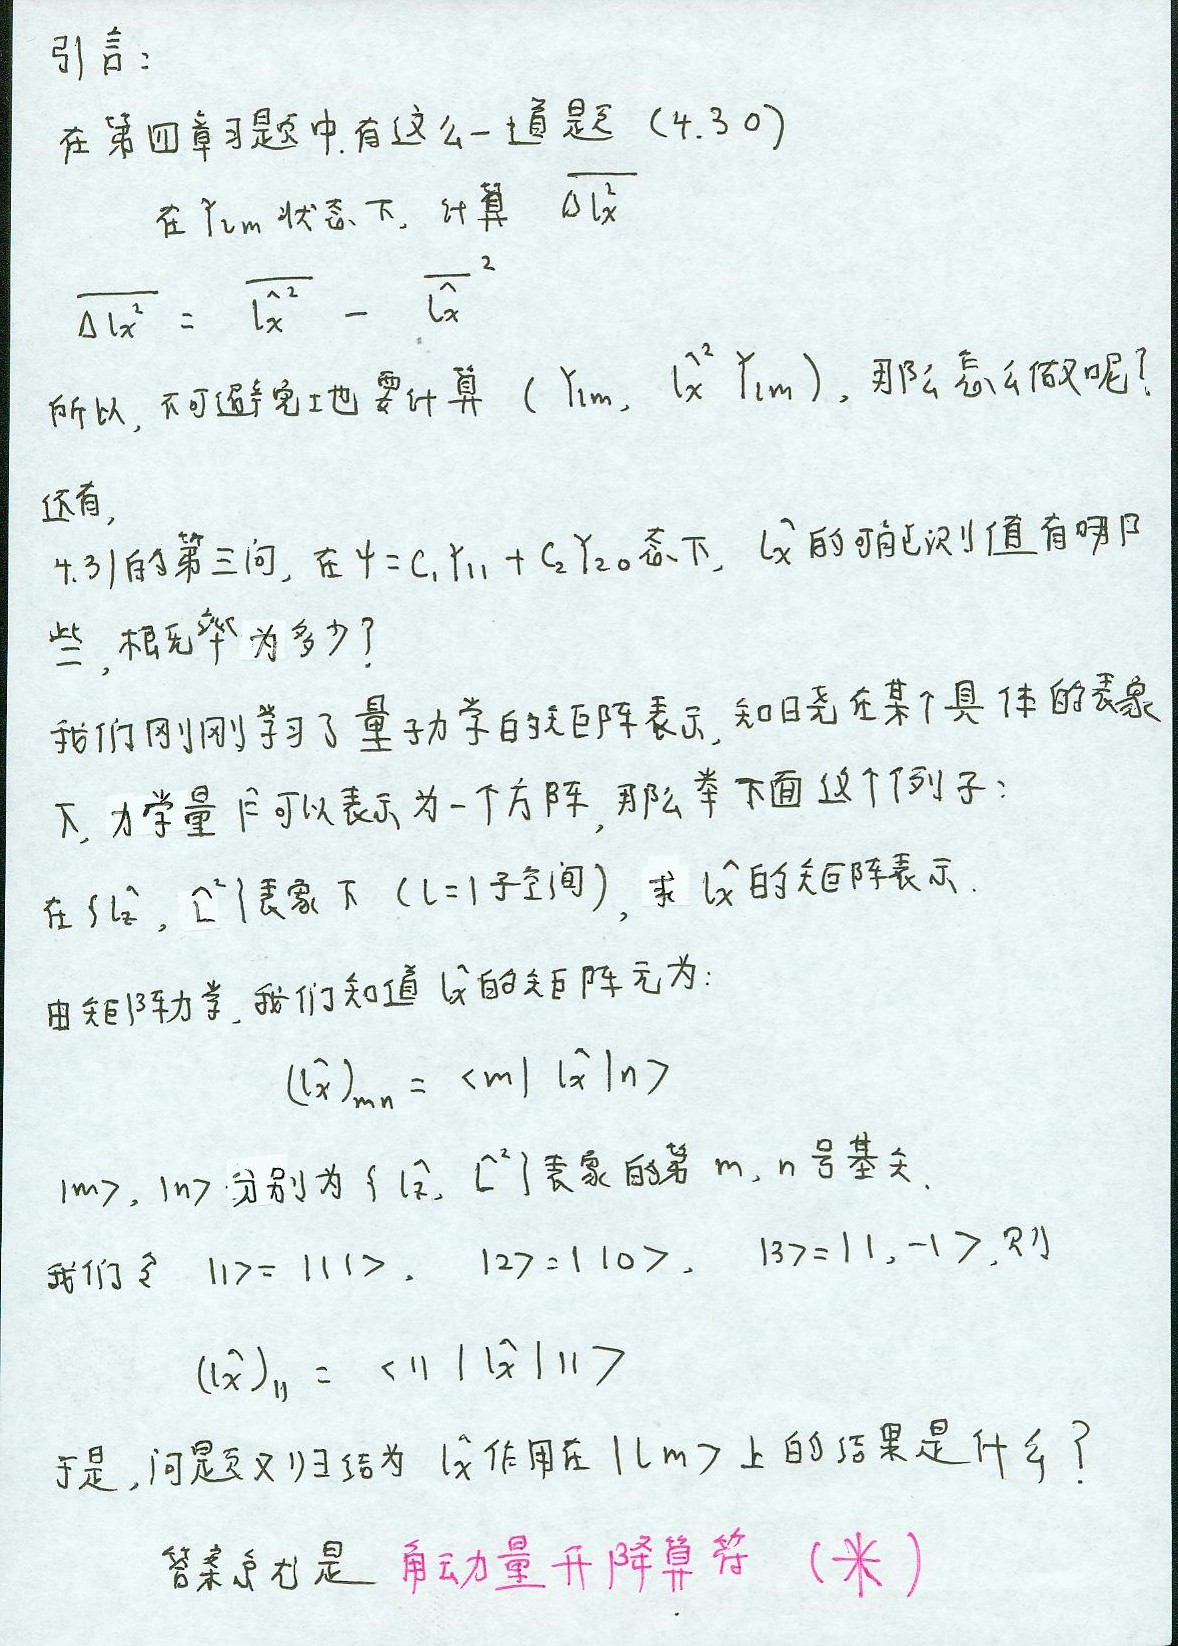 引言:
在第四章习题中,有这么一道题 (4.30)
在 Ylm 状态下, 计算 \overline{Δlx²}
\overline{Δlx²} = \overline{l̂x²} - \overline{l̂x}²
所以, 不可避免地要计算 (Ylm, l̂x² Ylm), 那么怎么做呢?
还有,
4.31的第三问, 在 ψ = C₁Y₁₁ + C₂Y₂₀ 态下, l̂x 的可能测值有哪
些, 概率为多少?
我们刚刚学习了量子力学的矩阵表示, 知晓在某个具体的表象
下, 力学量 F̂ 可以表示为一个方阵, 那么举下面这个例子:
在{l̂z, L̂²}表象下 (l=1子空间), 求 l̂x 的矩阵表示.
由矩阵力学, 我们知道 l̂x 的矩阵元为:
(l̂x)mn = <m| l̂x |n>
|m>, |n> 分别为 {l̂z, L̂²} 表象的第 m, n 号基矢.
我们令 |1> = |11>, |2> = |10>, |3> = |1,-1>, 则
(l̂x)₁₁ = <11| l̂x |11>
于是, 问题又归结为 l̂x 作用在 |lm> 上的结果是什么?
答案就是 角动量升降算符 (米)